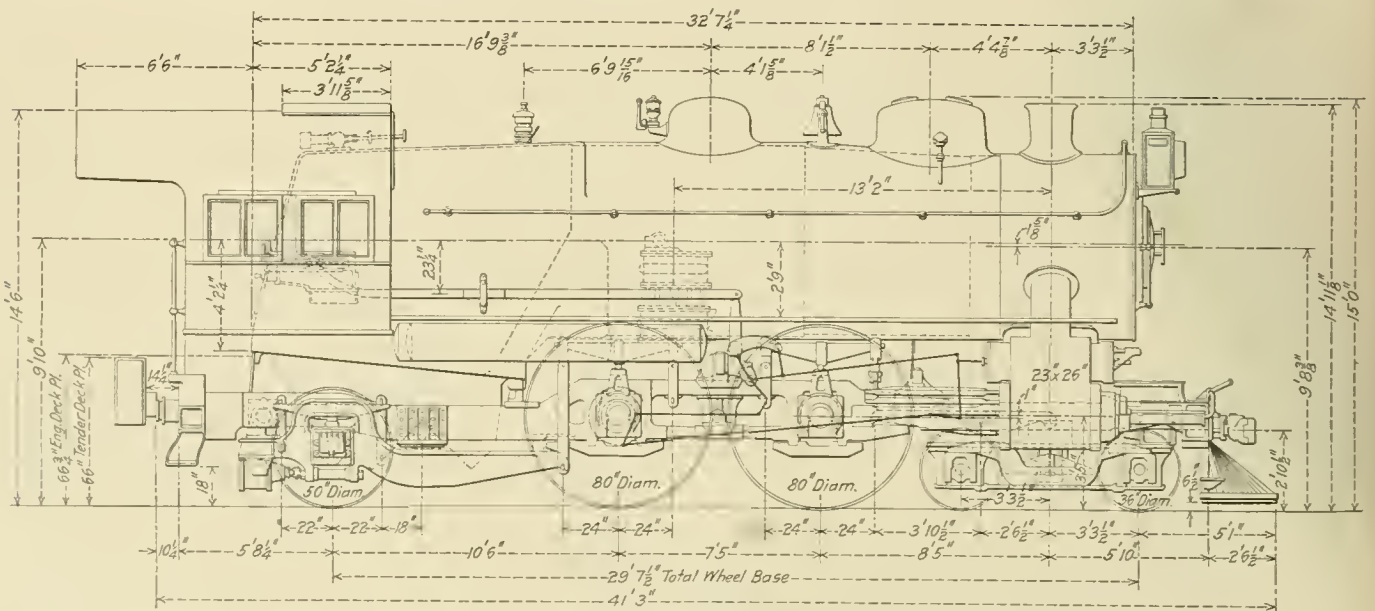 32'7¼"
16'9⅜" 8'1½" 4'4⅞" 3'3½"
6'6" 5'2¼" 6'9 15/16" 4'1⅝"
3'11⅝"
13'2"
1⅝"
14'6" 9'10" 4'2¼" 23¼" 2'9" 9'8⅜" 14'11⅛" 15'0"
14¼"
66¾" Eng. Deck Pl.
66" Tender Deck Pl.
23"x 26"
18" 35" 6½" 2'10½"
50" Diam. 80" Diam. 80" Diam. 36" Diam.
3'3½"
22" 22" 18" 24" 24" 24" 24" 3'10½" 2'6½" 3'3½" 5'1"
10¼" 5'8¼" 10'6" 7'5" 8'5" 5'10" 2'6½"
29'7½" Total Wheel Base
41'3"